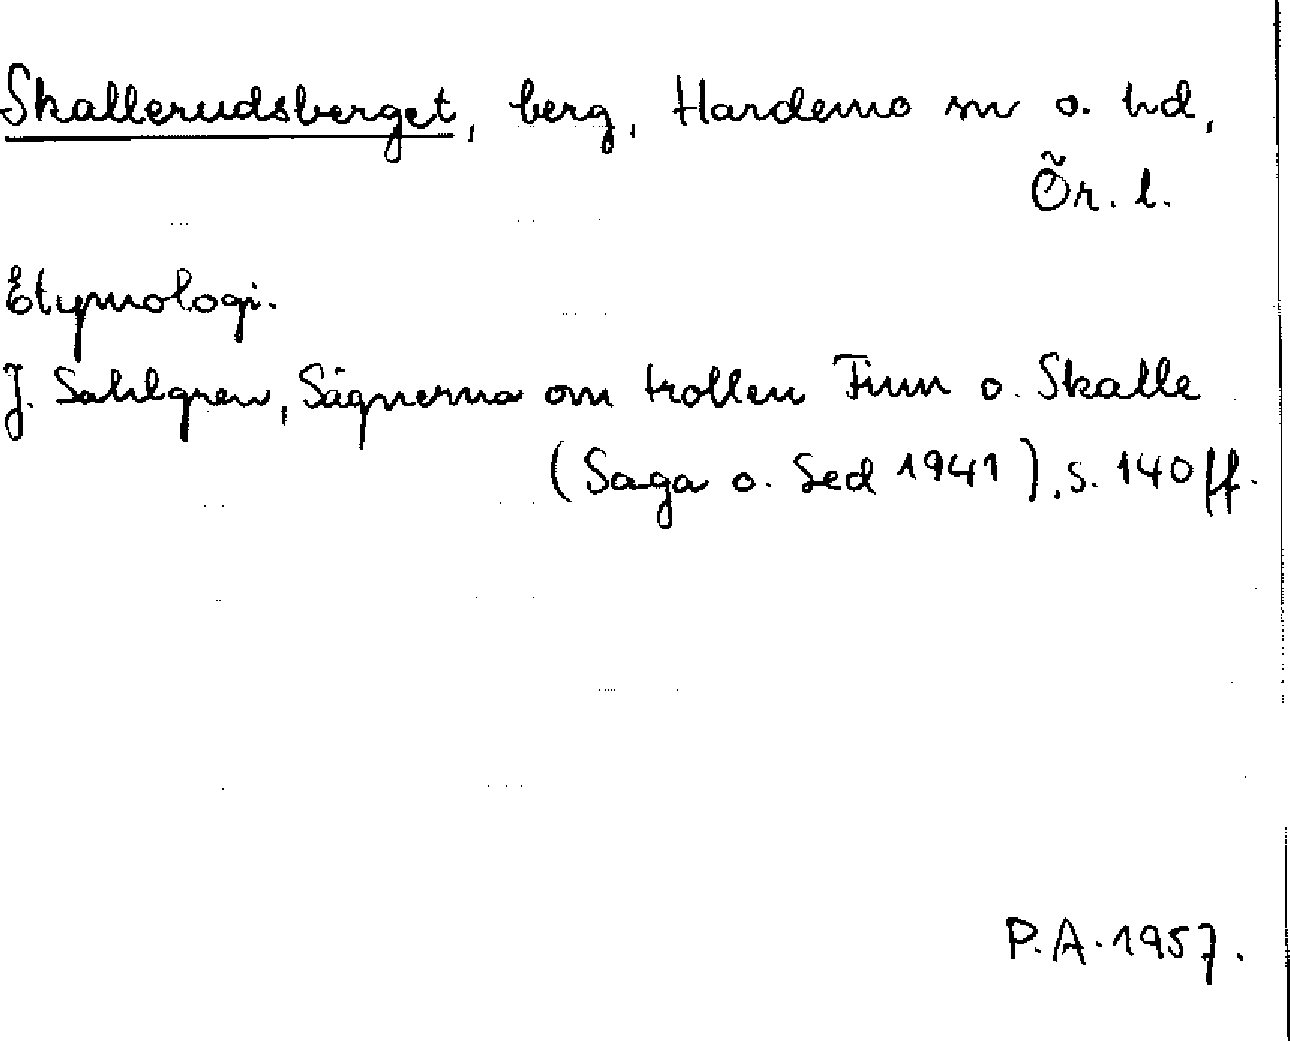 Skallerudsberget, berg, Hardemo sn o. hd,
Ör. l.
Etymologi.
J. Sahlgren, Sägnerna om trollen Finn o. Skalle
(Saga o. Sed 1941), s. 140 ff.
P.A. 1957.